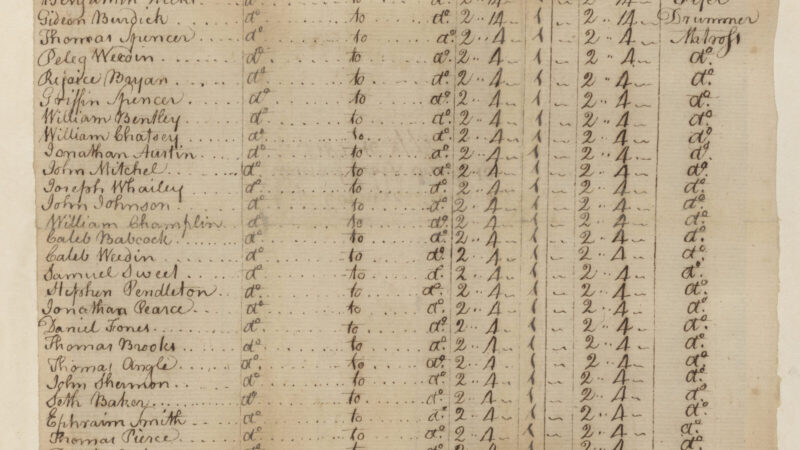 Gideon Burdick . . . . dº . . . . . to . . . . . dº. 2 .. 4 1 2 .. 4 Drummer
Thomas Spencer . . . . dº . . . . . to . . . . . dº. 2 .. 4 1 2 .. 4 Matross
Peleg Weedin dº . . . . . to . . . . . dº. 2 .. 4 1 2 .. 4 dº.
Rejoice Bryan . . . . dº . . . . . to . . . . . dº. 2 .. 4 1 2 .. 4 dº.
Griffin Spencer . . . . dº . . . . . to . . . . . dº. 2 .. 4 1 2 .. 4 dº.
William Bentley . . . . dº . . . . . to . . . . . dº. 2 .. 4 1 2 .. 4 dº.
William Chatsey . . . . dº . . . . . to . . . . . dº. 2 .. 4 1 2 .. 4 dº.
Jonathan Austin . . . . dº . . . . . to . . . . . dº. 2 .. 4 1 2 .. 4 dº.
John Mitchel . . . . dº . . . . . to . . . . . dº. 2 .. 4 1 2 .. 4 dº.
Joseph Whailey . . . . dº . . . . . to . . . . . dº. 2 .. 4 1 2 .. 4 dº.
John Johnson . . . . dº . . . . . to . . . . . dº. 2 .. 4 1 2 .. 4 dº.
William Champlin . . . . dº . . . . . to . . . . . dº. 2 .. 4 1 2 .. 4 dº.
Caleb Babcock . . . . dº . . . . . to . . . . . dº. 2 .. 4 1 2 .. 4 dº.
Caleb Weedin . . . . dº . . . . . to . . . . . dº. 2 .. 4 1 2 .. 4 dº.
Samuel Sweet . . . . dº . . . . . to . . . . . dº. 2 .. 4 1 2 .. 4 dº.
Stephen Pendleton . . . . dº . . . . . to . . . . . dº. 2 .. 4 1 2 .. 4 dº.
Jonathan Pearce . . . . dº . . . . . to . . . . . dº. 2 .. 4 1 2 .. 4 dº.
Daniel Fones . . . . dº . . . . . to . . . . . dº. 2 .. 4 1 2 .. 4 dº.
Thomas Brooks . . . . dº . . . . . to . . . . . dº. 2 .. 4 1 2 .. 4 dº.
Thomas Angle . . . . dº . . . . . to . . . . . dº. 2 .. 4 1 2 .. 4 dº.
John Shermon . . . . dº . . . . . to . . . . . dº. 2 .. 4 1 2 .. 4 dº.
Seth Baker . . . . dº . . . . . to . . . . . dº. 2 .. 4 1 2 .. 4 dº.
Ephraim Smith . . . . dº . . . . . to . . . . . dº. 2 .. 4 1 2 .. 4 dº.
Thomas Pierce . . . . dº . . . . . to . . . . . dº. 2 .. 4 1 2 .. 4 dº.